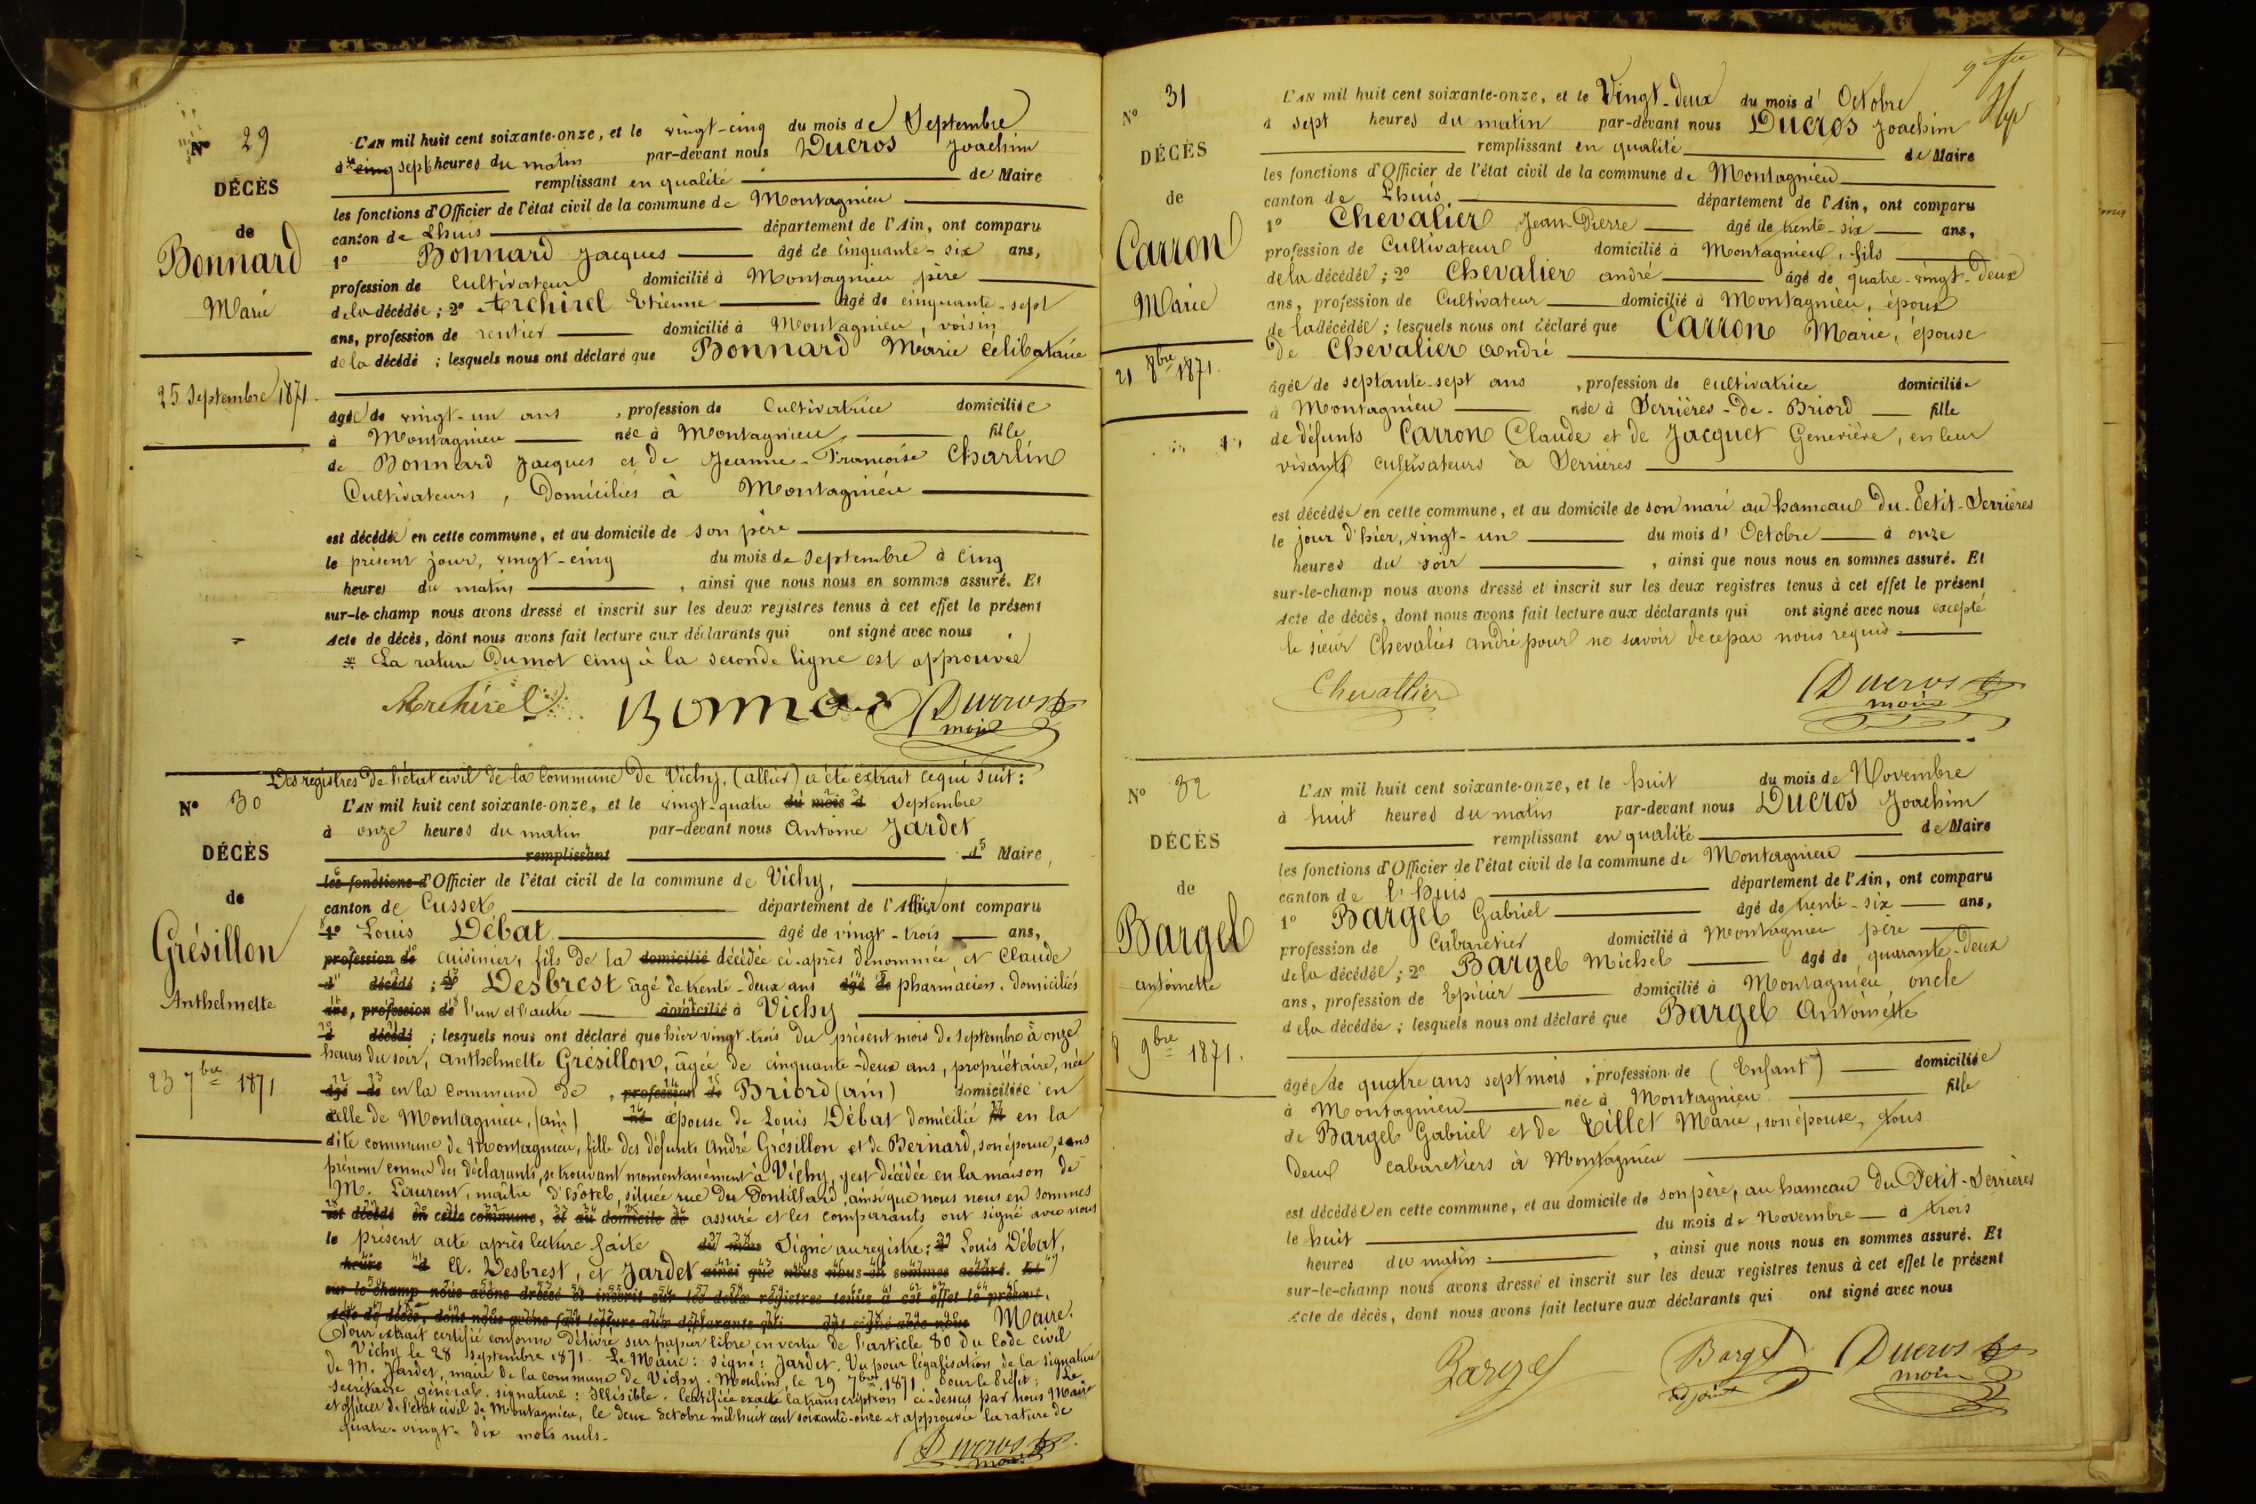 Nº 29
DÉCÈS
de
Bonnard
Marie
25 Septembre 1871.
L'AN mil huit cent soixante-onze, et le vingt-cinq du mois de Septembre
à cinq sept heures du matin par-devant nous Ducros Joachim
remplissant en qualité de Maire
les fonctions d'Officier de l'état civil de la commune de Montagnieu
canton de Lhuis département de l'Ain, ont comparu
1º Bonnard Jacques âgé de cinquante-six ans,
profession de Cultivateur domicilié à Montagnieu père
de la décédée ; 2º Archirel Etienne âgé de cinquante-sept
ans, profession de rentier domicilié à Montagnieu, voisin
de la décédé ; lesquels nous ont déclaré que Bonnard Marie Célibataire
âgée de vingt-un ans , profession de Cultivatrice domiciliée
à Montagnieu née à Montagnieu, fille
de Bonnard Jacques et de Jeanne-Françoise Charlin
Cultivateurs, Domiciliés à Montagnieu
est décédée en cette commune, et au domicile de son père
le présent jour, vingt-cinq du mois de Septembre à Cinq
heures du matin , ainsi que nous nous en sommes assuré. Et
sur-le-champ nous avons dressé et inscrit sur les deux registres tenus à cet effet le présent
Acte de décès, dont nous avons fait lecture aux déclarants qui ont signé avec nous .
* La rature Du mot cinq à la seconde ligne est approuvée
Archirel Bonnar Ducros
maire
Des registres de l'état civil de la Commune de Vichy, (allier) a été extrait ce qui suit :
Nº 30
DÉCÈS
de
Grésillon
Anthelmette
23 7bre 1871
L'AN mil huit cent soixante-onze, et le vingt-quatre du mois d Septembre
à onze heures du matin par-devant nous Antoine Jardet
remplissant d Maire,
les fonctions d'Officier de l'état civil de la commune de Vichy,
canton de Cusset département de l'Allier ont comparu
1º Louis Débat âgé de vingt-trois ans,
profession de cuisinier, fils de la domicilié décédée ci-après dénommée et Claude
d décédé ; 2º Desbrest âgé de trente-deux ans âgé de pharmacien. Domiciliés
ans, profession de l'un et l'autre domicilié à Vichy
d décédé ; lesquels nous ont déclaré que hier vingt-trois du présent mois de Septembre à onze
heures du soir, anthelmette Grésillon, âgée de cinquante-deux ans, propriétaire, née
âgé de en la Commune de , profession de Briord (ain) domiciliée en
celle de Montagnieu, (ain) né épouse de Louis Débat domicilié en la
dite commune de Montagnieu, fille des défunts André Grésillon et de Bernard, son épouse, sans
prénom connu des déclarants, se trouvant momentanément à Vichy, y est décédée en la maison de
M. Laurent, maître d'hôtel, située rue Du Pontillard, ainsi que nous nous en sommes
est décédé en cette commune, et au domicile de assuré et les comparants ont signé avec nous
le présent acte après lecture faite du mois Signé au registre : Louis Débat,
heure d Cl. Desbrest, et Jardet ainsi que nous nous en sommes assuré. Et
sur-le-champ nous avons dressé et inscrit sur les deux registres tenus à cet effet le présent.
Acte de décès, dont nous avons fait lecture aux déclarants qui ont signé avec nous Maire.
Pour extrait certifié conforme Délivré sur papier libre, en vertu de l'article 80 du Code civil
Vichy le 28 septembre 1871. Le Maire : signé : Jardet. Vu pour légalisation de la signature
de M. Jardet, maire de la commune de Vichy. Moulins, le 29 7bre 1871 Pour le Préfet ; Le
secrétaire général. signature : Illisible. Certifiée exacte la transcription ci-dessus par nous Maire
et officier de l'état civil de Montagnieu, le deux octobre mil huit cent soixante-onze et approuvée la rature de
quatre-vingt-dix mots nuls.
Ducros
maire
Nº 31
DÉCÈS
de
Carron
Marie
21 8bre 1871.
L'AN mil huit cent soixante-onze, et le Vingt-deux du mois d'Octobre
à sept heures du matin par-devant nous Ducros Joachim
remplissant en qualité de Maire
les fonctions d'Officier de l'état civil de la commune de Montagnieu
canton de Lhuis département de l'Ain, ont comparu
1º Chevalier Jean-Pierre âgé de trente-six ans,
profession de Cultivateur domicilié à Montagnieu, fils
de la décédée ; 2º Chevalier andré âgé de quatre-vingt-Deux
ans, profession de Cultivateur domicilié à Montagnieu, époux
de la décédée ; lesquels nous ont déclaré que Carron Marie, épouse
De Chevalier André
âgée de septante-sept ans , profession de cultivatrice domiciliée
à Montagnieu née à Serrières-de-Briord fille
de défunts Carron Claude et de Jacquet Geneviève, en leur
vivant cultivateurs à Serrières
est décédée en cette commune, et au domicile de son mari au hameau Du Petit-Serrières
le jour d'hier, vingt-un du mois d'Octobre à onze
heures du soir , ainsi que nous nous en sommes assuré. Et
sur-le-champ nous avons dressé et inscrit sur les deux registres tenus à cet effet le présent
Acte de décès, dont nous avons fait lecture aux déclarants qui ont signé avec nous excepté
le sieur Chevalier andré pour ne savoir de ce par nous requis.
Chevallier Ducros
maire
Nº 32
DÉCÈS
de
Bargel
antoinette
8 9bre 1871.
L'AN mil huit cent soixante-onze, et le huit du mois de Novembre
à huit heures du matin par-devant nous Ducros Joachim
remplissant en qualité de Maire
les fonctions d'Officier de l'état civil de la commune de Montagnieu
canton de l'huis département de l'Ain, ont comparu
1º Bargel Gabriel âgé de trente-six ans,
profession de Cabaretier domicilié à Montagnieu père
de la décédée ; 2º Bargel Michel âgé de quarante-Deux
ans, profession de Epicier domicilié à Montagnieu, oncle
de la décédée ; lesquels nous ont déclaré que Bargel Antoinette
âgée de quatre ans sept mois , profession de (Enfant) domiciliée
à Montagnieu née à Montagnieu fille
de Bargel Gabriel et de Tillet Marie, son épouse, tous
deux cabaretiers à Montagnieu
est décédée en cette commune, et au domicile de son père, au hameau Du Petit-Serrières
le huit du mois de Novembre à trois
heures du matin , ainsi que nous nous en sommes assuré. Et
sur-le-champ nous avons dressé et inscrit sur les deux registres tenus à cet effet le présent
Acte de décès, dont nous avons fait lecture aux déclarants qui ont signé avec nous
Bargel Bargel Ducros
adjoint maire